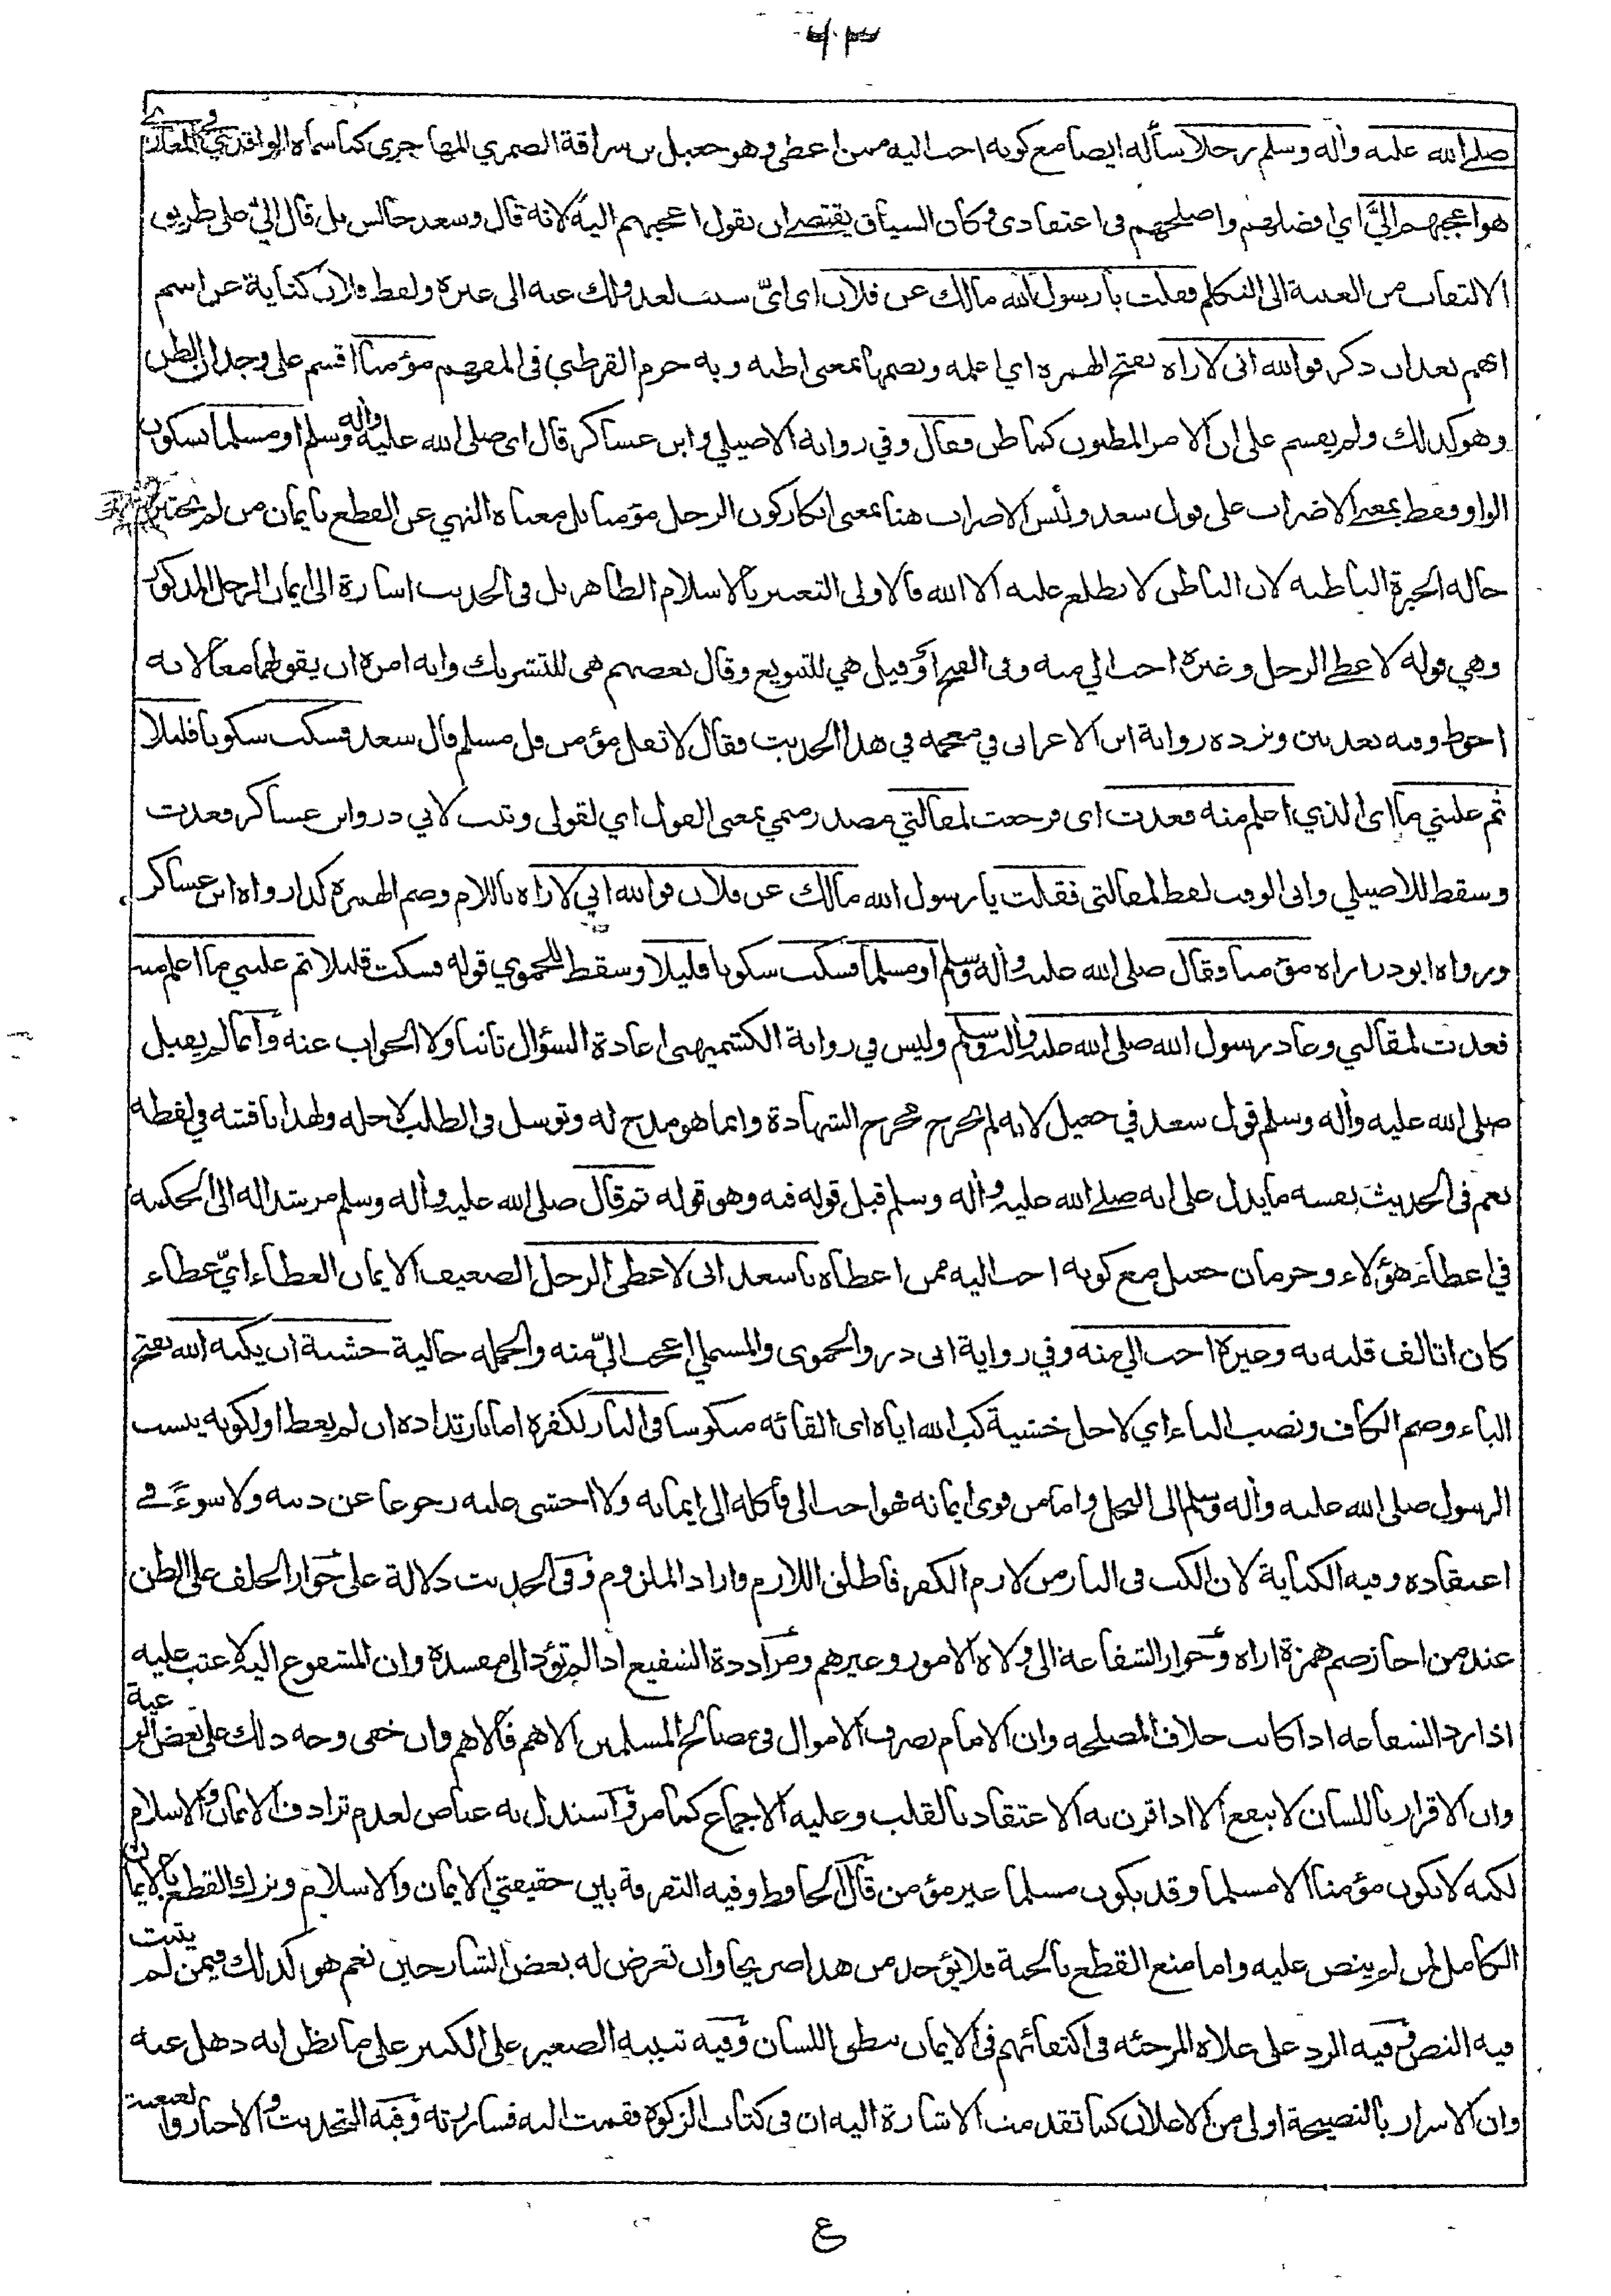 ٦٠٣
صلى الله عليه وآله وسلم رجلا سأله ايضا مع كونه احب اليه ممن اعطى وهو جعيل بن سراقة الضمري المهاجري كما سماه الواقدي في المغازي
هو اعجبهم اليَّ اي افضلهم واصلحهم في اعتقادي وكان السياق يقتضي ان يقول اعجبهم اليه لانه قال وسعد جالس بل قال اليّ على طريق
الالتفات من الغيبة الى التكلم فقلت يا رسول الله مالك عن فلان اي ايّ سبب لعدولك عنه الى غيره ولفظ فلان كناية عن اسم
ابهم بعد ان ذكر فوالله اني لاراه بفتح الهمزة اي اعلمه وبضمها بمعنى اظنه وبه جزم القرطبي في المفهم مؤمنا اقسم على وجدان الظن
وهو كذلك ولم يقسم على ان الامر المظنون كما ظن فقال وفي رواية الاصيلي وابن عساكر قال اي صلى الله عليه وآله وسلم او مسلما بسكون
الواو فقط بمعنى الاضراب على قول سعد وليس الاضراب هنا بمعنى انكار كون الرجل مؤمنا بل معناه النهي عن القطع بايمان من لم يختبر
حاله الخبرة الباطنه لان الباطن لا يطلع عليه الا الله فالاولى التعبير بالاسلام الظاهر بل في الحديث اشارة الى ايمان الرجل المذكور
وهي قوله لاعطي الرجل وغيره احب الي منه وفي الفتح او قيل هي للتنويع وقال بعضهم هي للتشريك وانه امره ان يقولهما معا لانه
احوط وفيه بعد بين وترده رواية ابن الاعرابي في معجمه في هذا الحديث فقال لا تقل مؤمن قل مسلم قال سعد فسكت سكوتا قليلا
ثم غلبني ما اي الذي اعلم منه فعدت اي فرجعت لمقالتي مصدر ميمي بمعنى القول اي لقولي وثبت لابي ذر وابن عساكر فعدت
وسقط للاصيلي وابي الوقت لفظ لمقالتي فقلت يا رسول الله مالك عن فلان فوالله اني لاراه باللام وضم الهمزة كذا رواه ابن عساكر
ورواه ابو ذر اراه مؤمنا وقال صلى الله عليه وآله وسلم او مسلما فسكت سكوتا قليلا وسقط للحموي قوله فسكت قليلا ثم غلبني ما اعلم منه
فعدت لمقالتي وعاد رسول الله صلى الله عليه وآله وسلم وليس في رواية الكشميهني اعادة السؤال ثانيا ولا الجواب عنه وانما لم يقبل
صلى الله عليه وآله وسلم قول سعد في جعيل لانه لم يخرج مخرج الشهادة وانما هو مدح له وتوسل في الطلب لاجله ولهذا ناقشه في لفظه
نعم في الحديث نفسه ما يدل على انه صلى الله عليه وآله وسلم قبل قوله فيه وهو قوله ثم قال صلى الله عليه وآله وسلم مرشدا له الى الحكمة
في اعطاء هؤلاء وحرمان جعيل مع كونه احب اليه ممن اعطاه يا سعد اني لاعطي الرجل الضعيف الايمان العطاء ايّ عطاء
كان اتالف قلبه به وغيره احب الي منه وفي رواية ابي ذر والحموى والمستملي اعجب اليّ منه والجمله حالية خشية ان يكبه الله بفتح
الياء وضم الكاف ونصب الباء اي لاجل خشية كب الله اياه اي القائه منكوسا في النار لكفره اما بارتداده ان لم يعط او لكونه ينسب
الرسول صلى الله عليه وآله وسلم الى البخل واما من قوى ايمانه فهو احب الي فأكله الى ايمانه ولا اخشى عليه رجوعا عن دينه ولا سوءً في
اعتقاده وفيه الكناية لان الكب في النار من لازم الكفر فاطلق اللازم واراد الملزوم وفي الحديث دلالة على جواز الحلف على الظن
عند من اجاز ضم همزة اراه وجواز الشفاعة الى ولاة الامور وغيرهم ومراددة الشفيع اذا لم تؤد الى مفسدة وان المشفوع اليه لا عتب عليه
اذا رد الشفاعه اذا كانت خلاف المصلحه وان الامام يصرف الاموال في مصالح المسلمين الاهم فالاهم وان خفى وجه ذلك على بعض الرعية
وان الاقرار باللسان لا ينفع الا اذا قرن به الاعتقاد بالقلب وعليه الاجماع كما مر واستدل به عياض لعدم ترادف الايمان والاسلام
لكنه لا يكون مؤمنا الا مسلما وقد يكون مسلما غير مؤمن قال الحافظ وفيه التفرقة بين حقيقتي الايمان والاسلام وترك القطع بالايمان
الكامل لمن لم ينص عليه واما منع القطع بالجنة فلا يؤخذ من هذا صريحا وان تعرض له بعض الشارحين نعم هو كذلك فيمن لم يثبت
فيه النص وفيه الرد على غلاة المرجئه في اكتفائهم في الايمان بنطق اللسان وفيه تنبيه الصغير على الكبير على ما يظن انه ذهل عنه
وان الاسرار بالنصيحة اولى من الاعلان كما تقدمت الاشارة اليه ان في كتاب الزكوة فقمت اليه فساررته وفيه التحديث والاخبار والعنعنة
ع